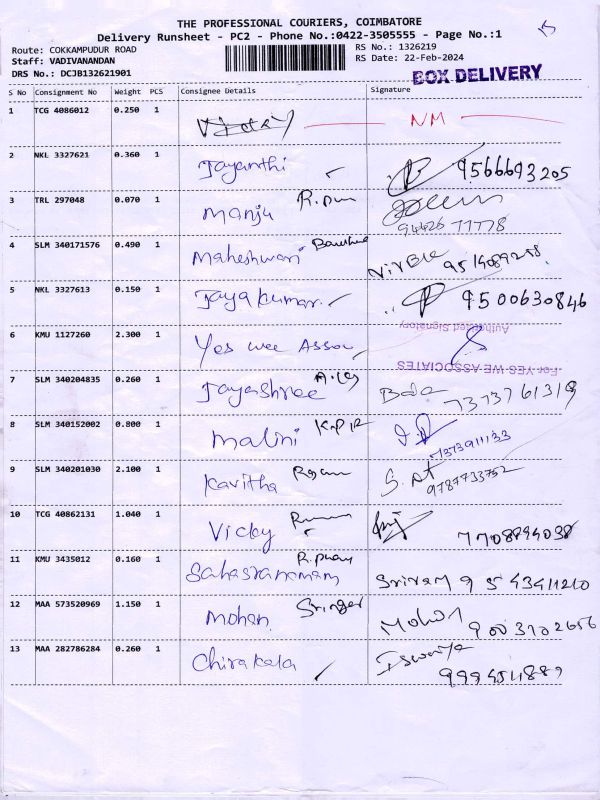 THE PROFESSIONAL COURIERS, COIMBATORE
Delivery Runsheet - PC2 - Phone No.:0422-3505555 - Page No.:1
Route: COKKAMPUDUR ROAD
RS No.: 1326219
Staff: VADIVANANDAN
RS Date: 22-Feb-2024
DRS No.: DCJB132621901
BOX DELIVERY
S No Consignment No Weight PCS Consignee Details Signature
1 TCG 4086012 0.250 1 NM
2 NKL 3327621 0.360 1 Jayanthi 9566693205
3 TRL 297048 0.070 1 Manju 94426 77778
4 SLM 340171576 0.490 1 Maheshwari
5 NKL 3327613 0.150 1 Jayakumar. 9500630846
Authorised Signatory
6 KMU 1127260 2.300 1 Yes wee Assou
For YES WE ASSOCIATES
7 SLM 340204835 0.260 1 Jayashree Bala 7373761319
8 SLM 340152002 0.800 1 Malini 7373911133
9 SLM 340201030 2.100 1 Kavitha 9787733752
10 TCG 40862131 1.040 1 Vicky 7708894038
11 KMU 3435012 0.160 1 Sahasranamam Sriram 9543411210
12 MAA 573520969 1.150 1 Mohan Mohan 9003102656
13 MAA 282786284 0.260 1 Chirakala Iswarya